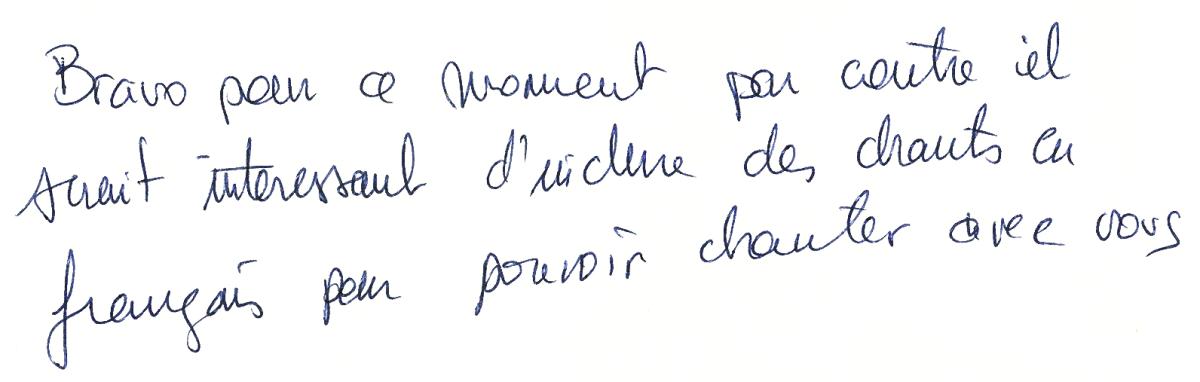 Bravo pour ce moment par contre il
serait intéressant d'inclure des chants en
français pour pouvoir chanter avec vous